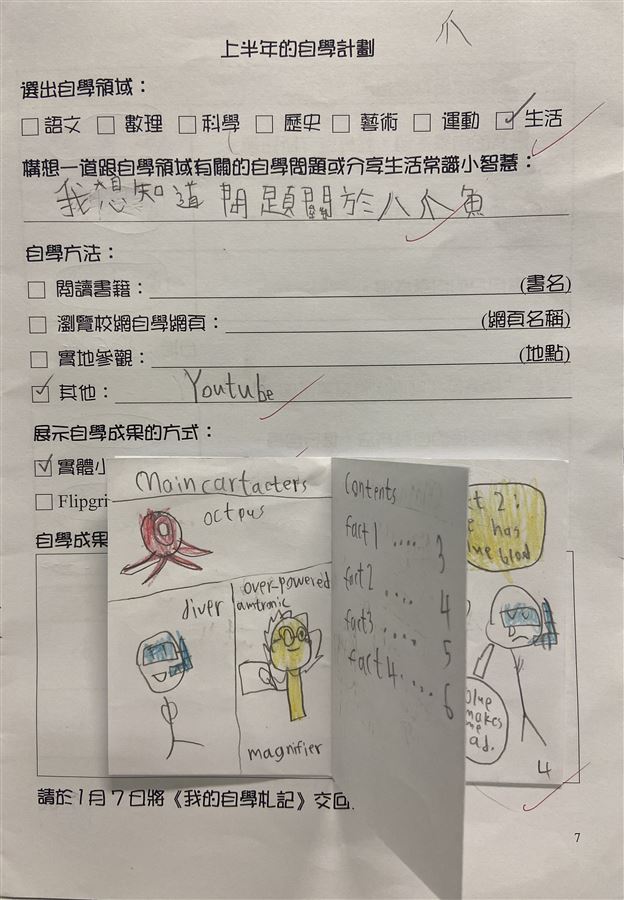 爪
上半年的自學計劃
選出自學領域：
□語文 □數理 □科學 □歷史 □藝術 □運動 ☑生活
構想一道跟自學領域有關的自學問題或分享生活常識小智慧：
我想知道問題關於八爪魚
自學方法：
□ 閱讀書籍： (書名)
□ 瀏覽校網自學網頁： (網頁名稱)
□ 實地參觀： (地點)
☑ 其他： Youtube
展示自學成果的方式：
☑ 實體小
□ Flipgri
自學成果
Main cartacters
octpus
diver
over-powered
amtronic
magnifier
Contents
fact 1 .... 3
fact 2 .... 4
fact 3 .... 5
fact 4 .... 6
ct 2:
e has
lue blod
blue
makes
me
ad.
4
請於1月7日將《我的自學札記》交回.
7